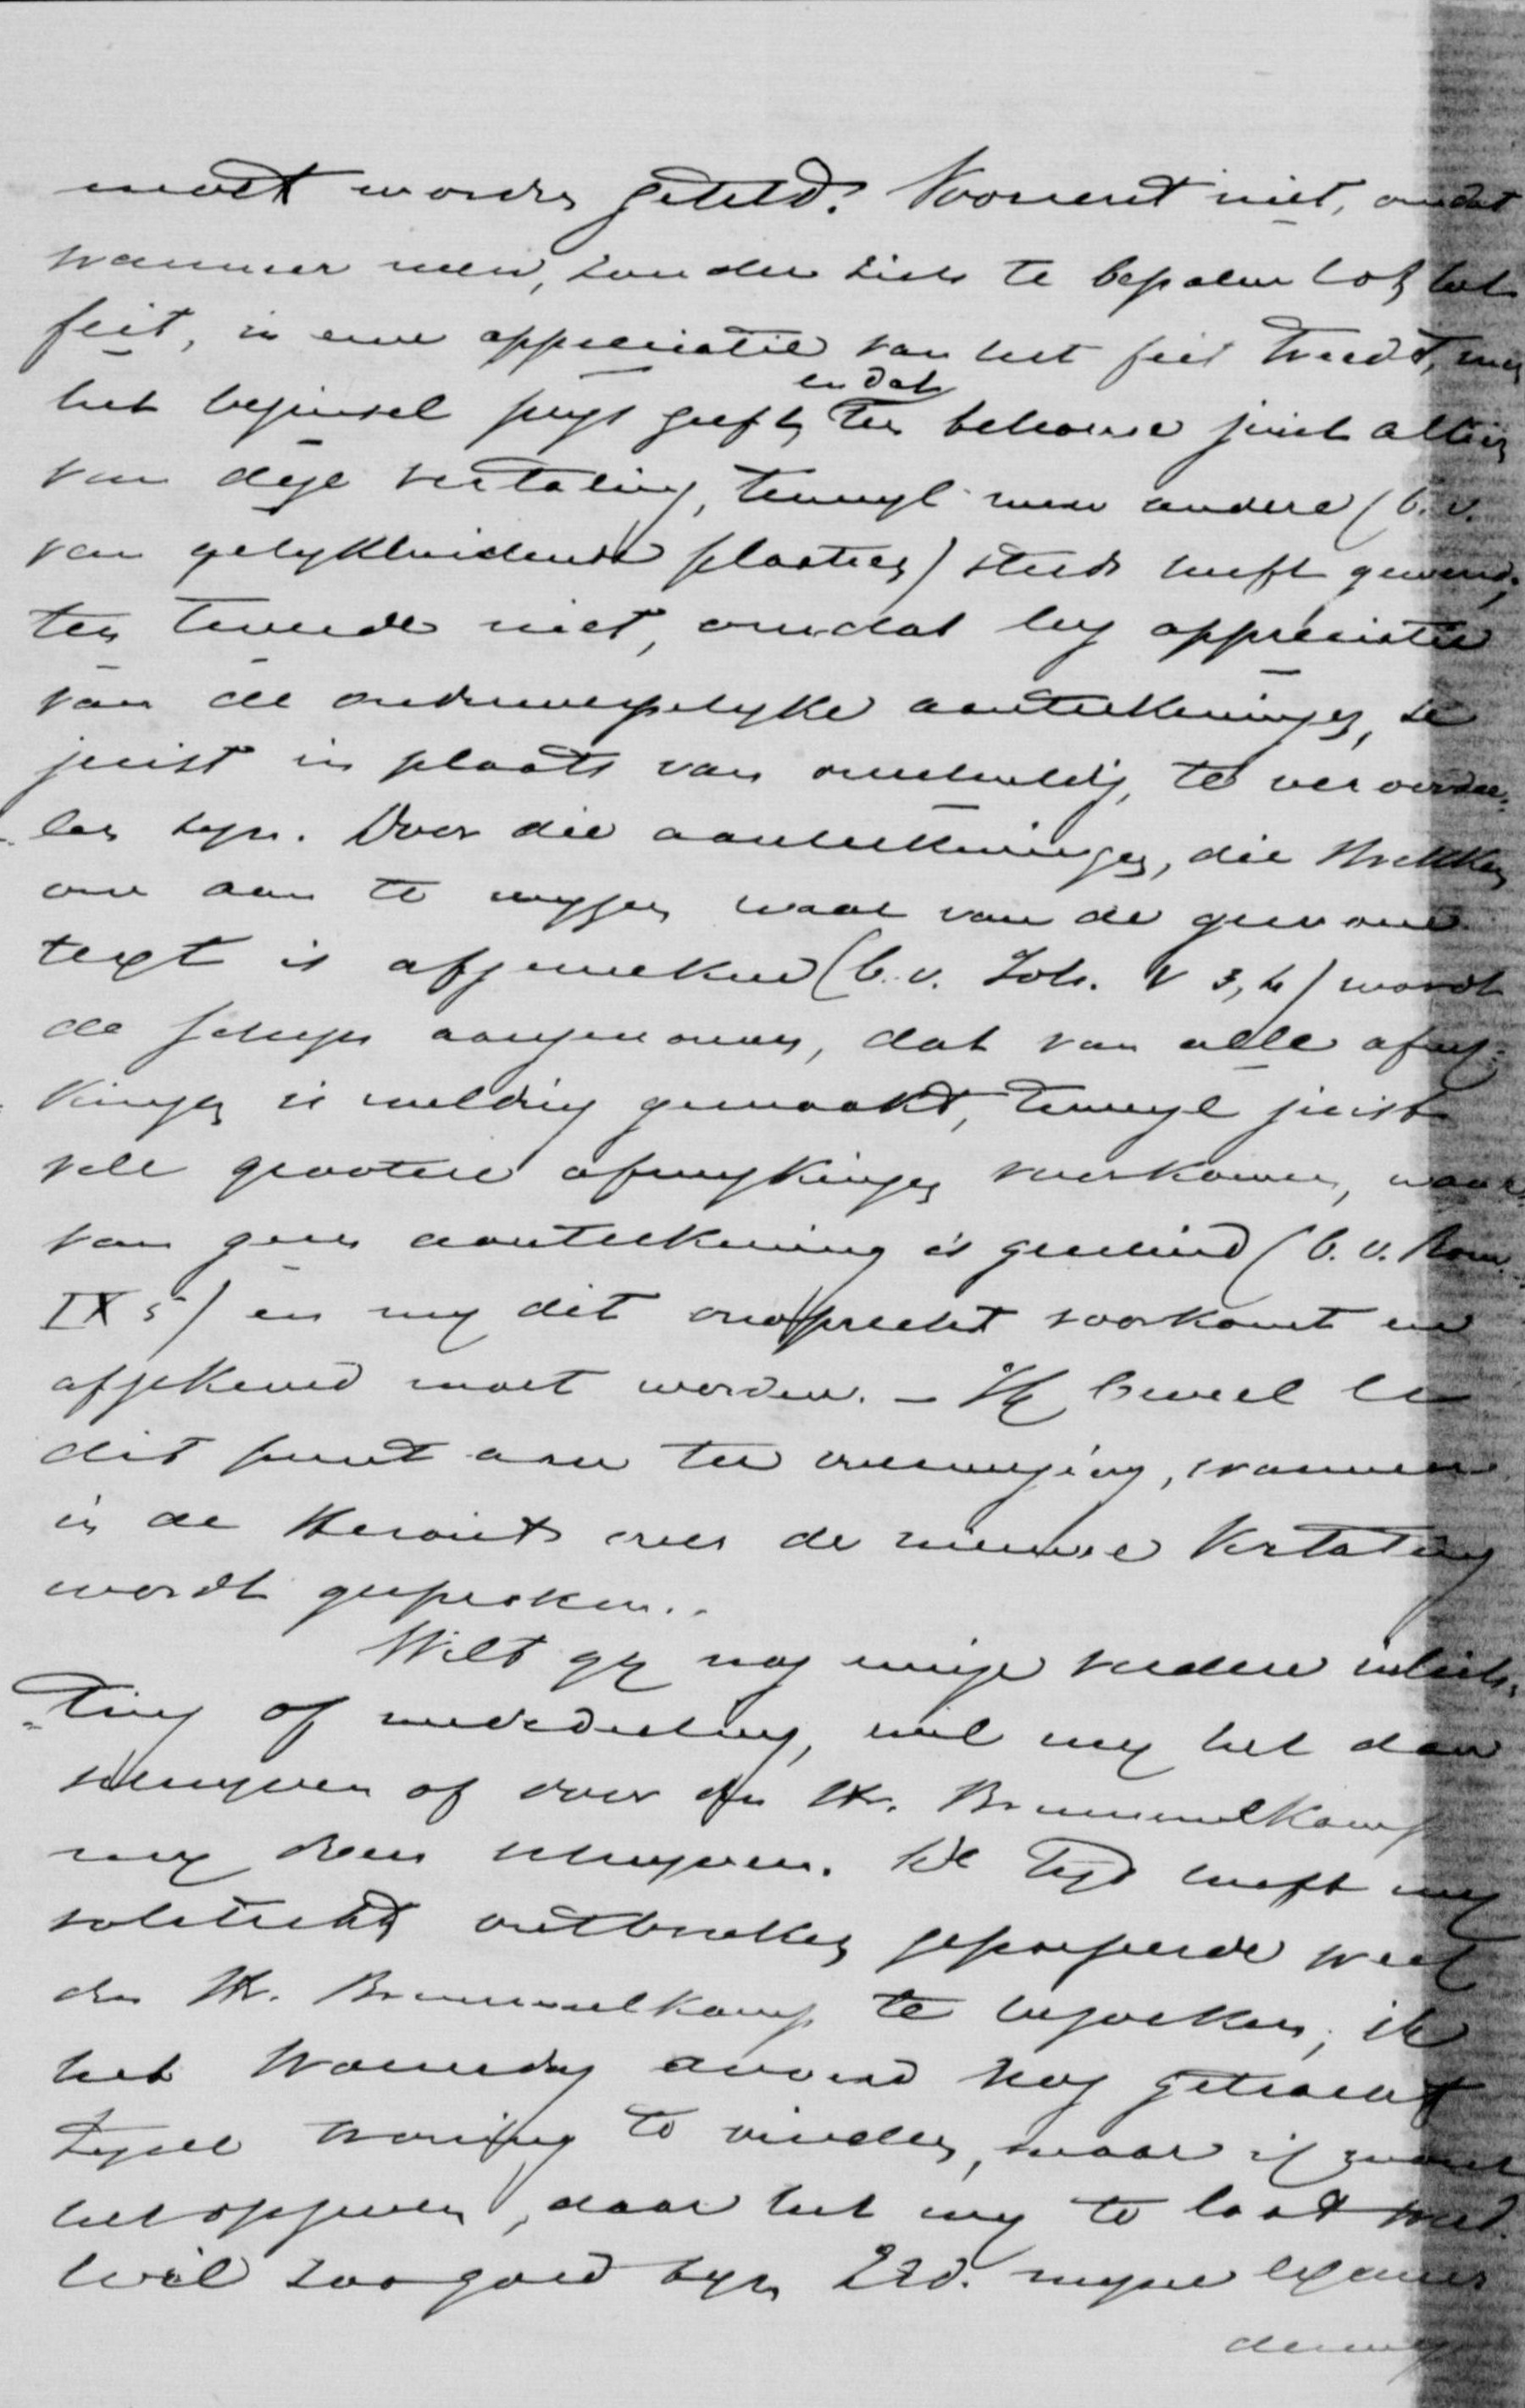 moet worden geteld? Vooreerst niet, omdat
wanneer men, zonder zich te bepalen tot het
feit, in eene appreciatie van het feit treedt, men
het beginsel prys geeft, en dat ten behoeve juist alleen
van deze vertaling, terwyl men andere (b.v.
van gelykluidende plaatsen) steeds heeft geweerd;
ten tweede niet, omdat by appreciatie
van de onderwerpelyke aanteekeningen, ze
juist in plaats van onschuldig, te veroordee-
len zyn. Door die aanteekeningen, die strekken
om aan te wyzen waar van de gewone
text is afgeweken (b.v. Joh. V 3, 4) wordt
de schyn aangenomen, dat van alle afwy-
kingen is melding gemaakt, terwyl juist
vele grootere afwykingen voorkomen, waar-
van geen aanteekening is gemaakt (b.v. Rom.
IX 5) en my dit onoprecht voorkomt en
afgekeurd moet worden. – Ik beveel U
dit punt aan ter overweging, wanneer
in de Heraut over de nieuwe Vertaling
wordt gesproken..
Wilt gy nog eenige verdere inlich-
ting of mededeeling, wil my het dan
schryven of door den Hr. Brummelkamp
my doen schryven. De tyd heeft my
volstrekt ontbroken gepasseerde week
den Hr. Brummelkamp te bezoeken; ik
heb Woensdag avond nog getracht
zyne woning te vinden, maar ik moest
het opgeven, daar het my te laat werd.
Wil zoo goed zyn ZEd. myne excuses